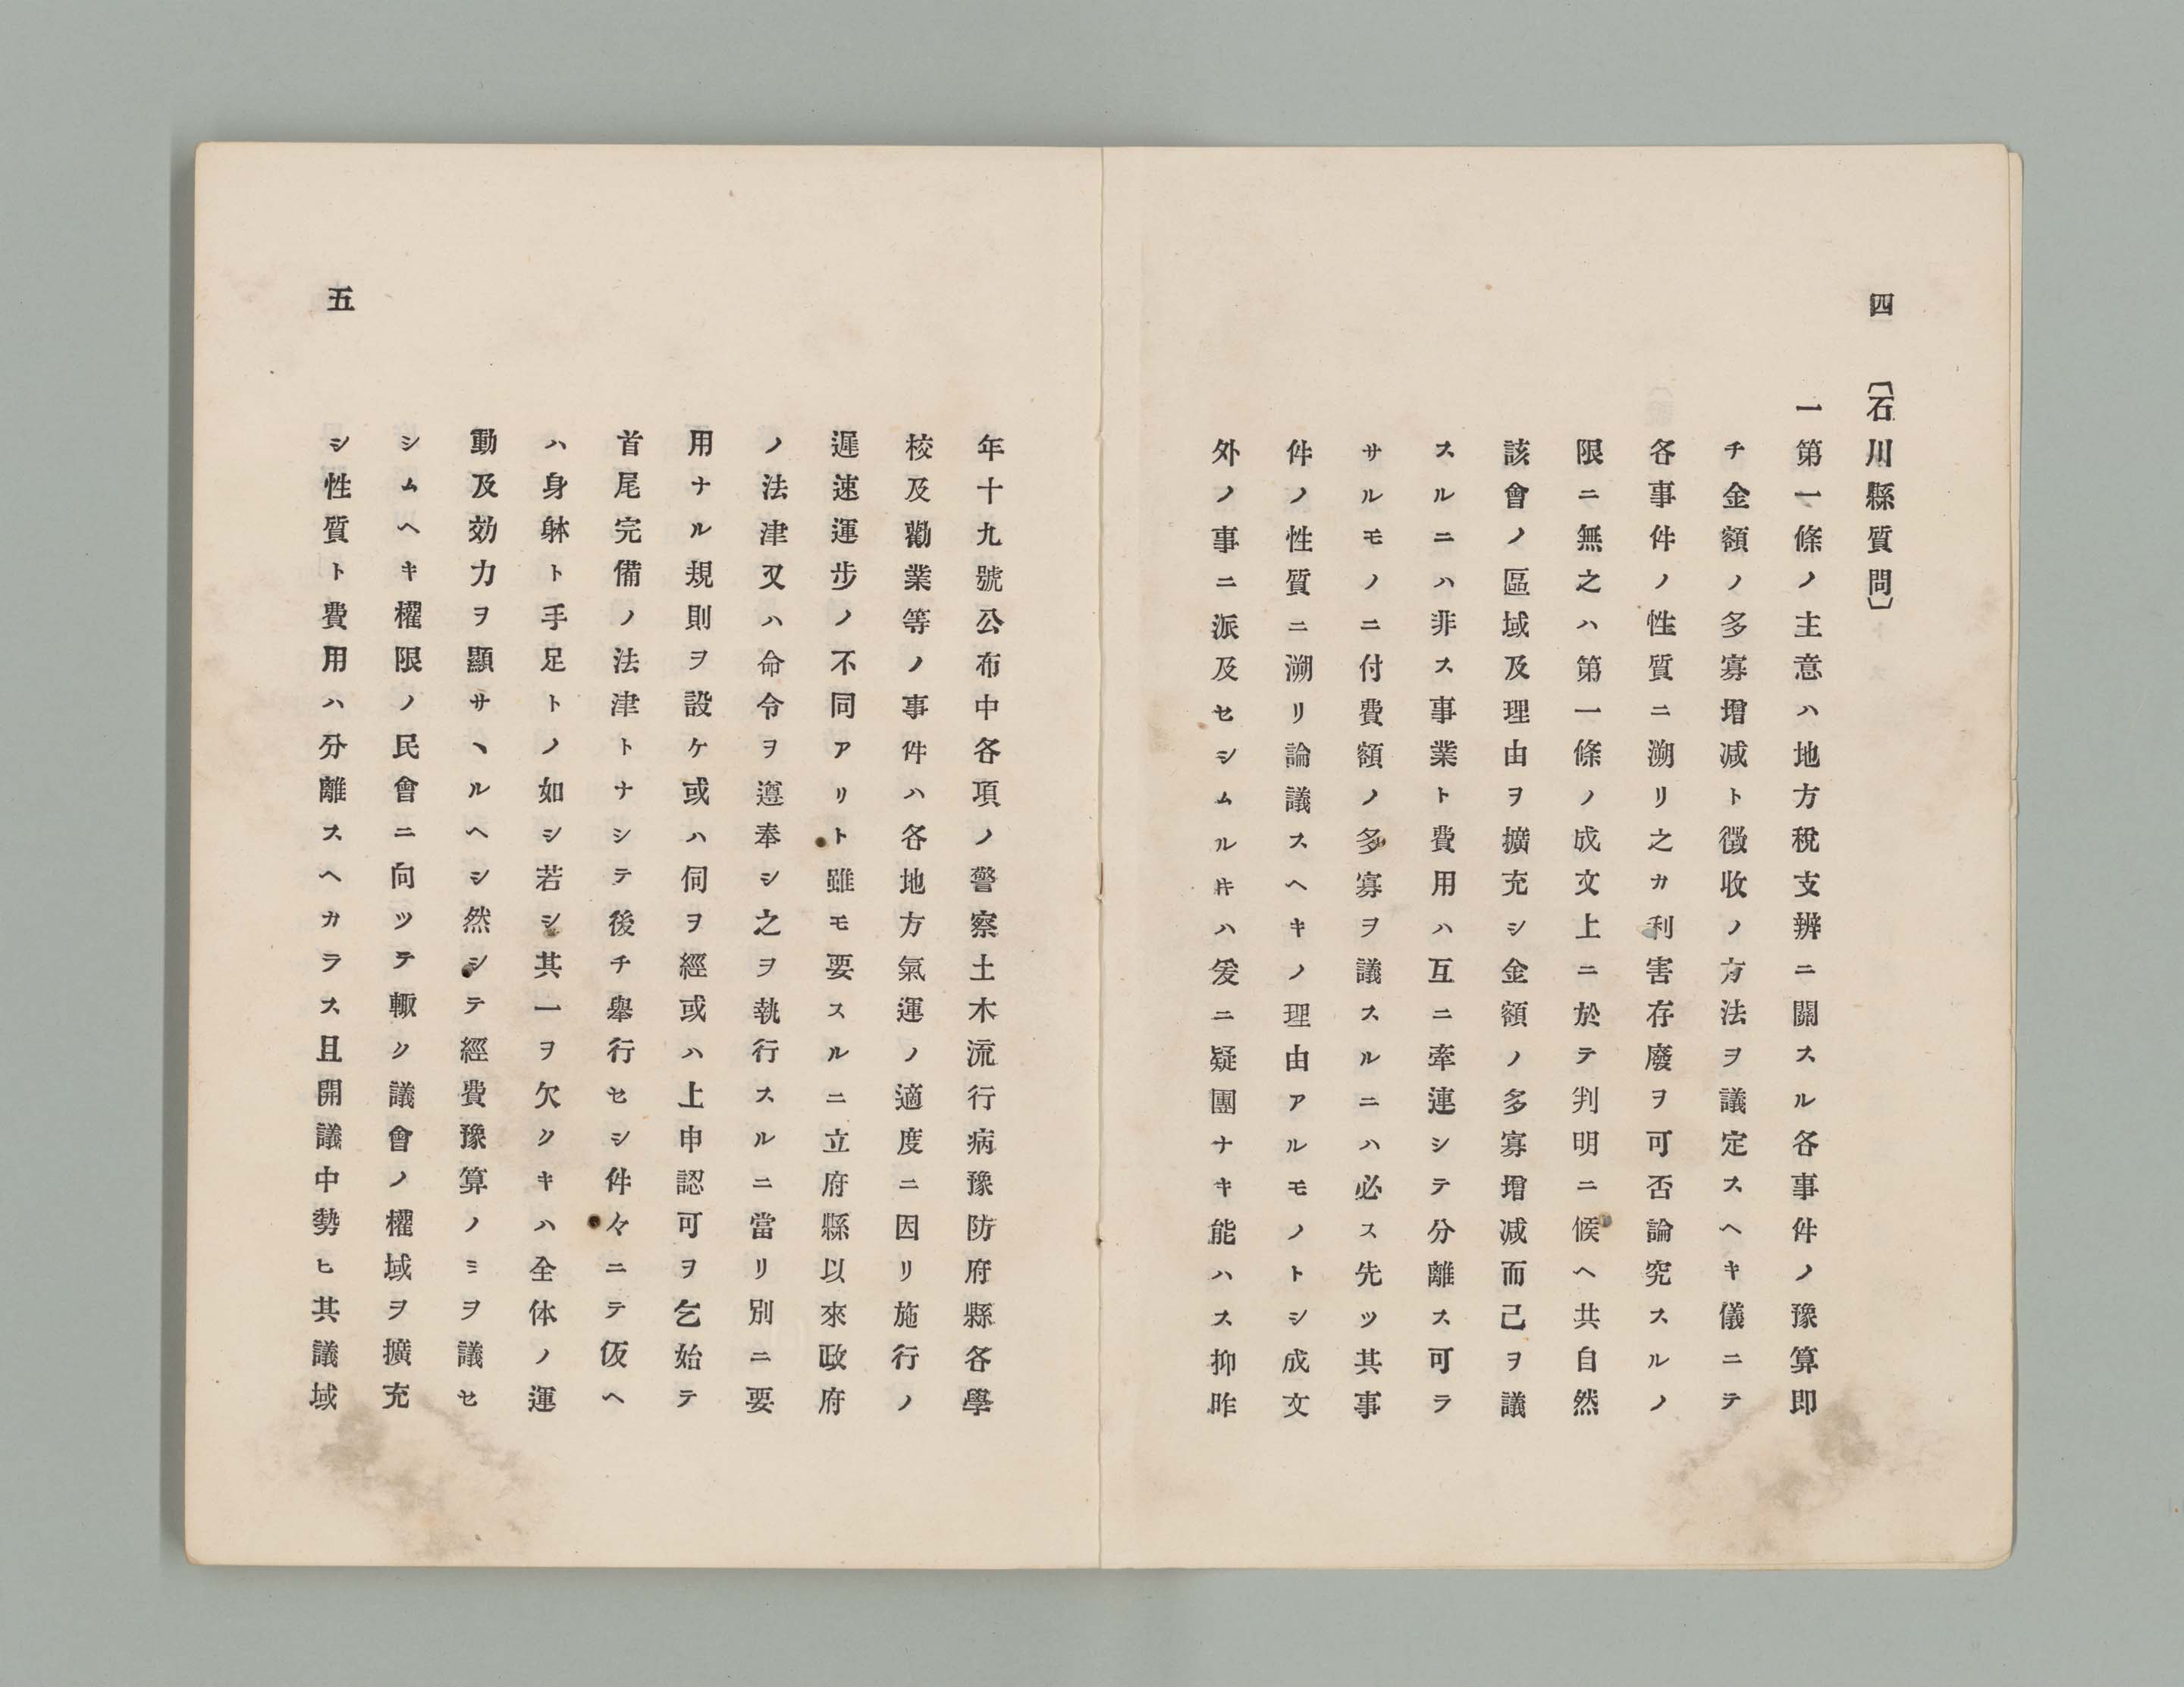 四
〔石川縣質問〕
一第一條ノ主意ハ地方稅支辨ニ關スル各事件ノ豫算即
チ金額ノ多寡增减ト徵收ノ方法ヲ議定スヘキ儀ニテ
各事件ノ性質ニ溯リ之カ利害存廢ヲ可否論究スルノ
限ニ無之ハ第一條ノ成文上ニ於テ判明ニ候ヘ共自然
該會ノ區域及理由ヲ擴充シ金額ノ多寡增减而己ヲ議
スルニハ非ス事業ト費用ハ互ニ牽連シテ分離ス可ラ
サルモノニ付費額ノ多寡ヲ議スルニハ必ス先ツ其事
件ノ性質ニ溯リ論議スヘキノ理由アルモノトシ成文
外ノ事ニ派及セシムル𪜈ハ爰ニ疑團ナキ能ハス抑昨
年十九號公布中各項ノ警察土木流行病豫防府縣各學
校及勸業等ノ事件ハ各地方氣運ノ適度ニ因リ施行ノ
遲速運步ノ不同アリト雖モ要スルニ立府縣以來政府
ノ法津又ハ命令ヲ遵奉シ之ヲ執行スルニ當リ別ニ要
用ナル規則ヲ設ケ或ハ伺ヲ經或ハ上申認可ヲ乞始テ
首尾完備ノ法津トナシテ後チ舉行セシ件々ニテ仮ヘ
ハ身躰ト手足トノ如シ若シ其一ヲ欠クキハ全体ノ運
動及効力ヲ顯サヽルヘシ然シテ經費豫算ノミヲ議セ
シムヘキ權限ノ民會ニ向ツテ輙ク議會ノ權域ヲ擴充
シ性質ト費用ハ分離スヘカラス且開議中勢ヒ其議域
五